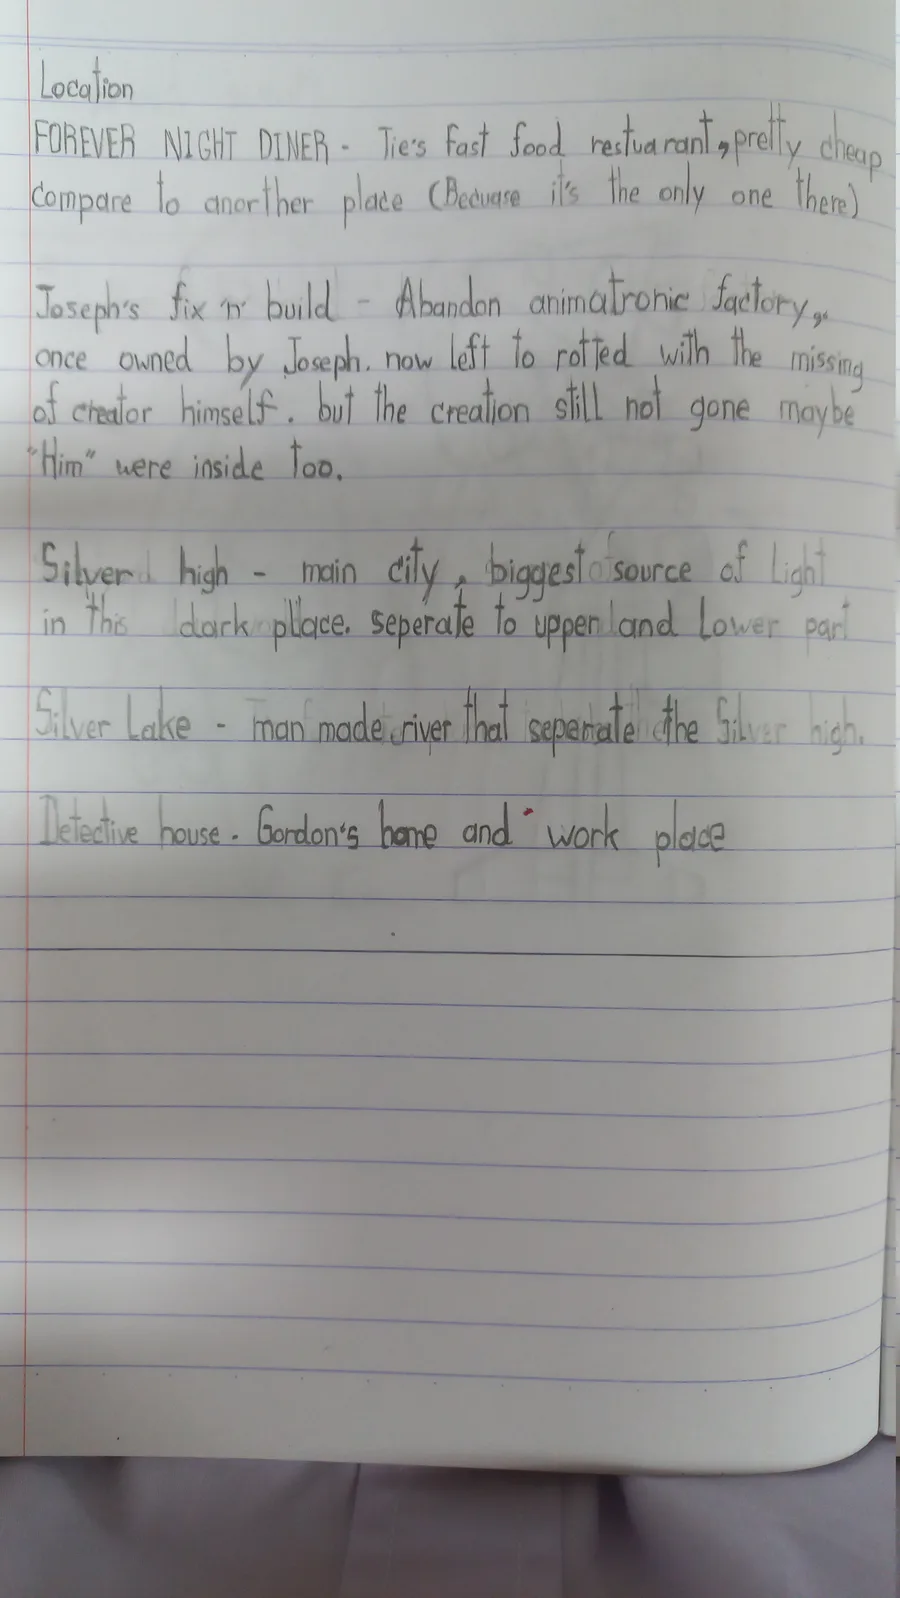 Location
FOREVER NIGHT DINER - Tie's fast food restuarant, pretty cheap
compare to anorther place (Becuase it's the only one there)
Joseph's fix 'n' build - Abandon animatronic factory,
once owned by Joseph. now left to rotted with the missing
of creator himself. but the creation still not gone maybe
"Him" were inside too.
Silver high - main city, biggest source of light
in this dark place. seperate to upper and lower part
Silver Lake - man made river that seperate the Silver high.
Detective house. Gordon's home and work place